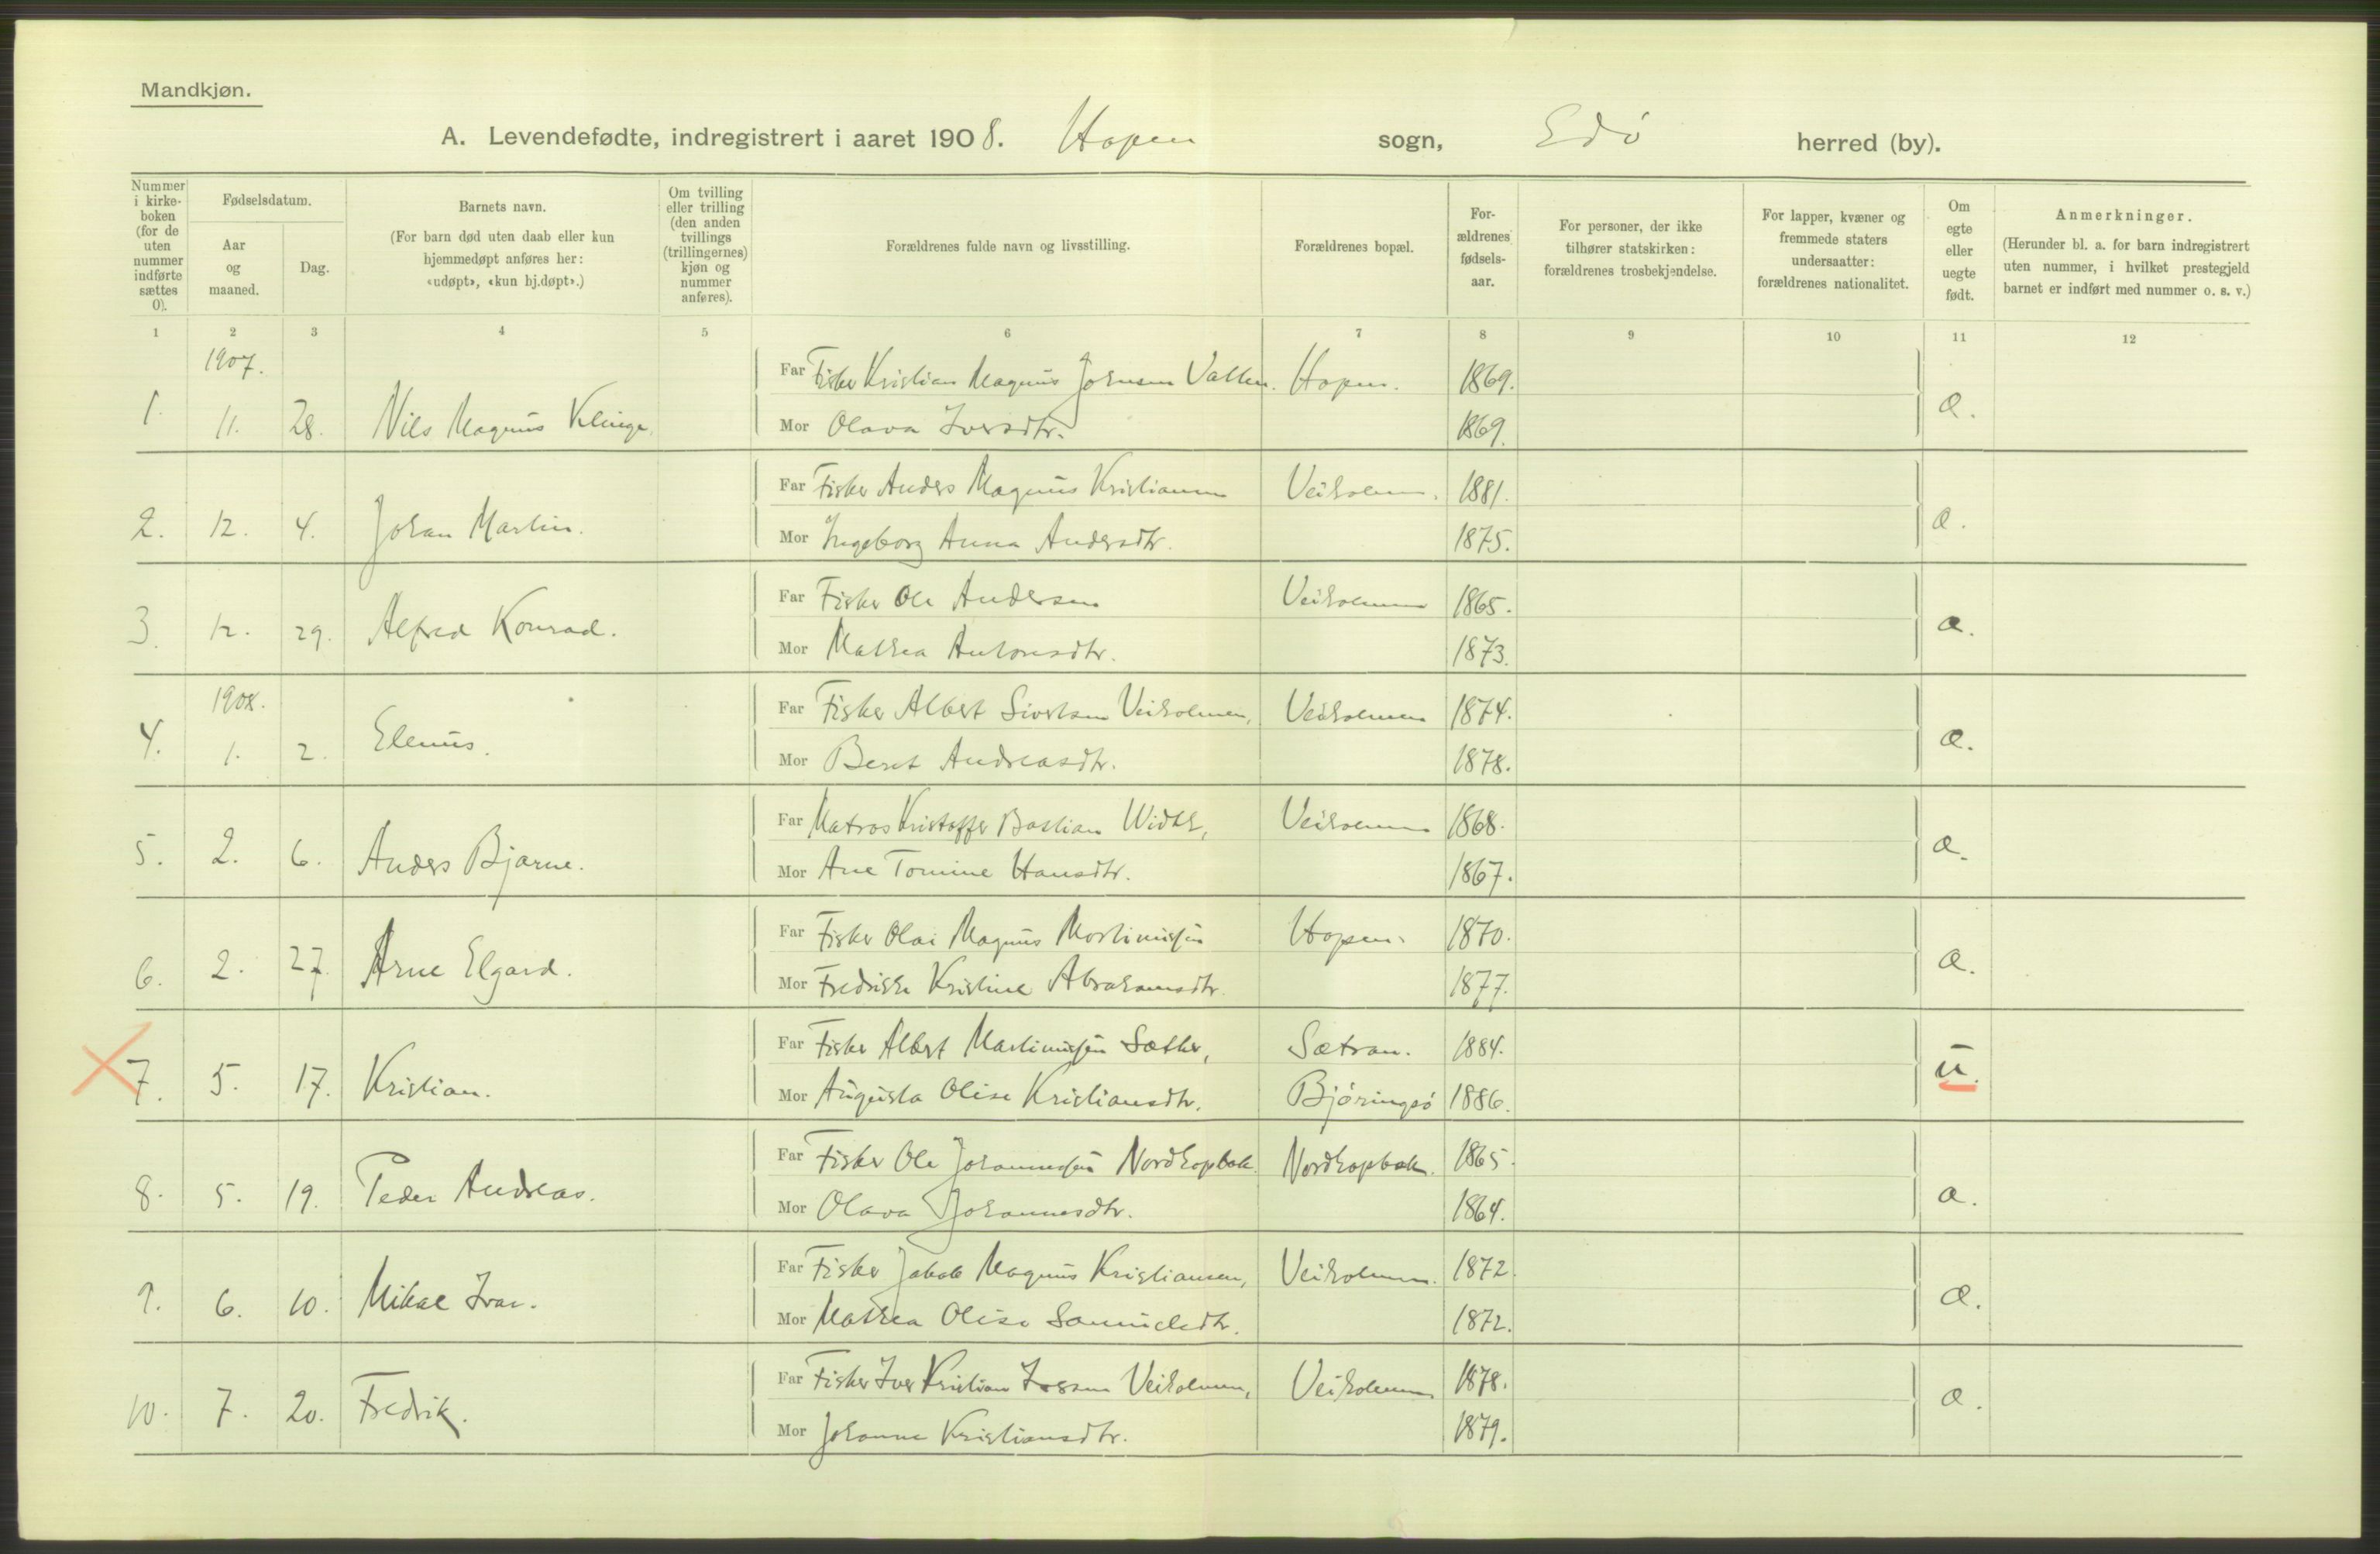 Mandkjøn.
A. Levendefødte, indregistrert i aaret 1908. Hopen sogn, Edø herred (by).
Nummer i kirke-boken (for de uten nummer indførte sættes 0).
Fødselsdatum.
Aar og maaned.
Dag.
Barnets navn.
(For barn død uten daab eller kun hjemmedøpt anføres her: «udøpt», «kun hj.døpt».)
Om tvilling eller trilling (den anden tvillings (trillingernes) kjøn og nummer anføres).
Forældrenes fulde navn og livsstilling.
Forældrenes bopæl.
For-ældrenes fødsels-aar.
For personer, der ikke tilhører statskirken: forældrenes trosbekjendelse.
For lapper, kvæner og fremmede staters undersaatter: forældrenes nationalitet.
Om egte eller uegte født.
Anmerkninger.
(Herunder bl. a. for barn indregistrert uten nummer, i hvilket prestegjeld barnet er indført med nummer o. s. v.)
1 2 3 4 5 6 7 8 9 10 11 12
1907.
Far Fisker Kristian Magnus Johnsen Vatten. Hopen. 1869.
1. 11. 28. Nils Magnus Klinge. æ.
Mor Olava Iversdtr. 1869.
Far Fisker Anders Magnus Kristiansen Veiholmen. 1881.
2. 12. 4. Johan Martin. æ.
Mor Ingeborg Anna Andersdtr. 1875.
Far Fisker Ole Andersen Veiholmen 1865.
3. 12. 29. Alfred Konrad. æ.
Mor Mathea Antonsdtr. 1873.
1908.
Far Fisker Albert Sivertsen Veiholmen, Veiholmen 1874.
4. 1. 2. Elenus. æ.
Mor Beret Andreasdtr. 1878.
Far Matros Kristoffer Bastian Width, Veiholmen 1868.
5. 2. 6. Anders Bjarne. æ.
Mor Ane Tomine Hansdtr. 1867.
Far Fisker Olai Magnus Martinussen Hopen. 1870.
6. 2. 27. Arne Elgard. æ.
Mor Fredrikke Kristine Abrahamsdtr. 1877.
Far Fisker Albert Martinussen Sæther, Sætran. 1884.
7. 5. 17. Kristian. u.
Mor Augusta Olise Kristiansdtr. Bjøringsø 1886.
Far Fisker Ole Johannessen Nordhopbak Nordhopbak. 1865.
8. 5. 19. Peder Andreas. æ.
Mor Olava Johannesdtr. 1864.
Far Fisker Jakob Magnus Kristiansen, Veiholmen. 1872.
9. 6. 10. Mikal Ivar. æ.
Mor Mathea Olise Samuelsdtr. 1872.
Far Fisker Iver Kristian Iversen Veiholmen, Veiholmen 1878.
10. 7. 20. Fredrik. æ.
Mor Johanne Kristiansdtr. 1879.